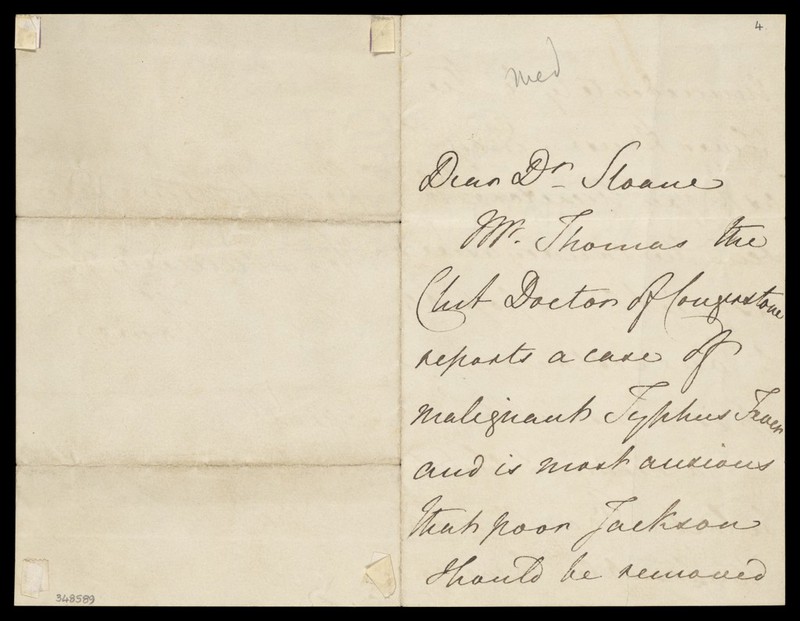 4
med
Dear Dr. Sloane
Mr. Thomas the
Club Doctor of Congerstone
reports a case of
malignant Typhus Fever
and is most anxious
that poor Jackson
should be removed
348589